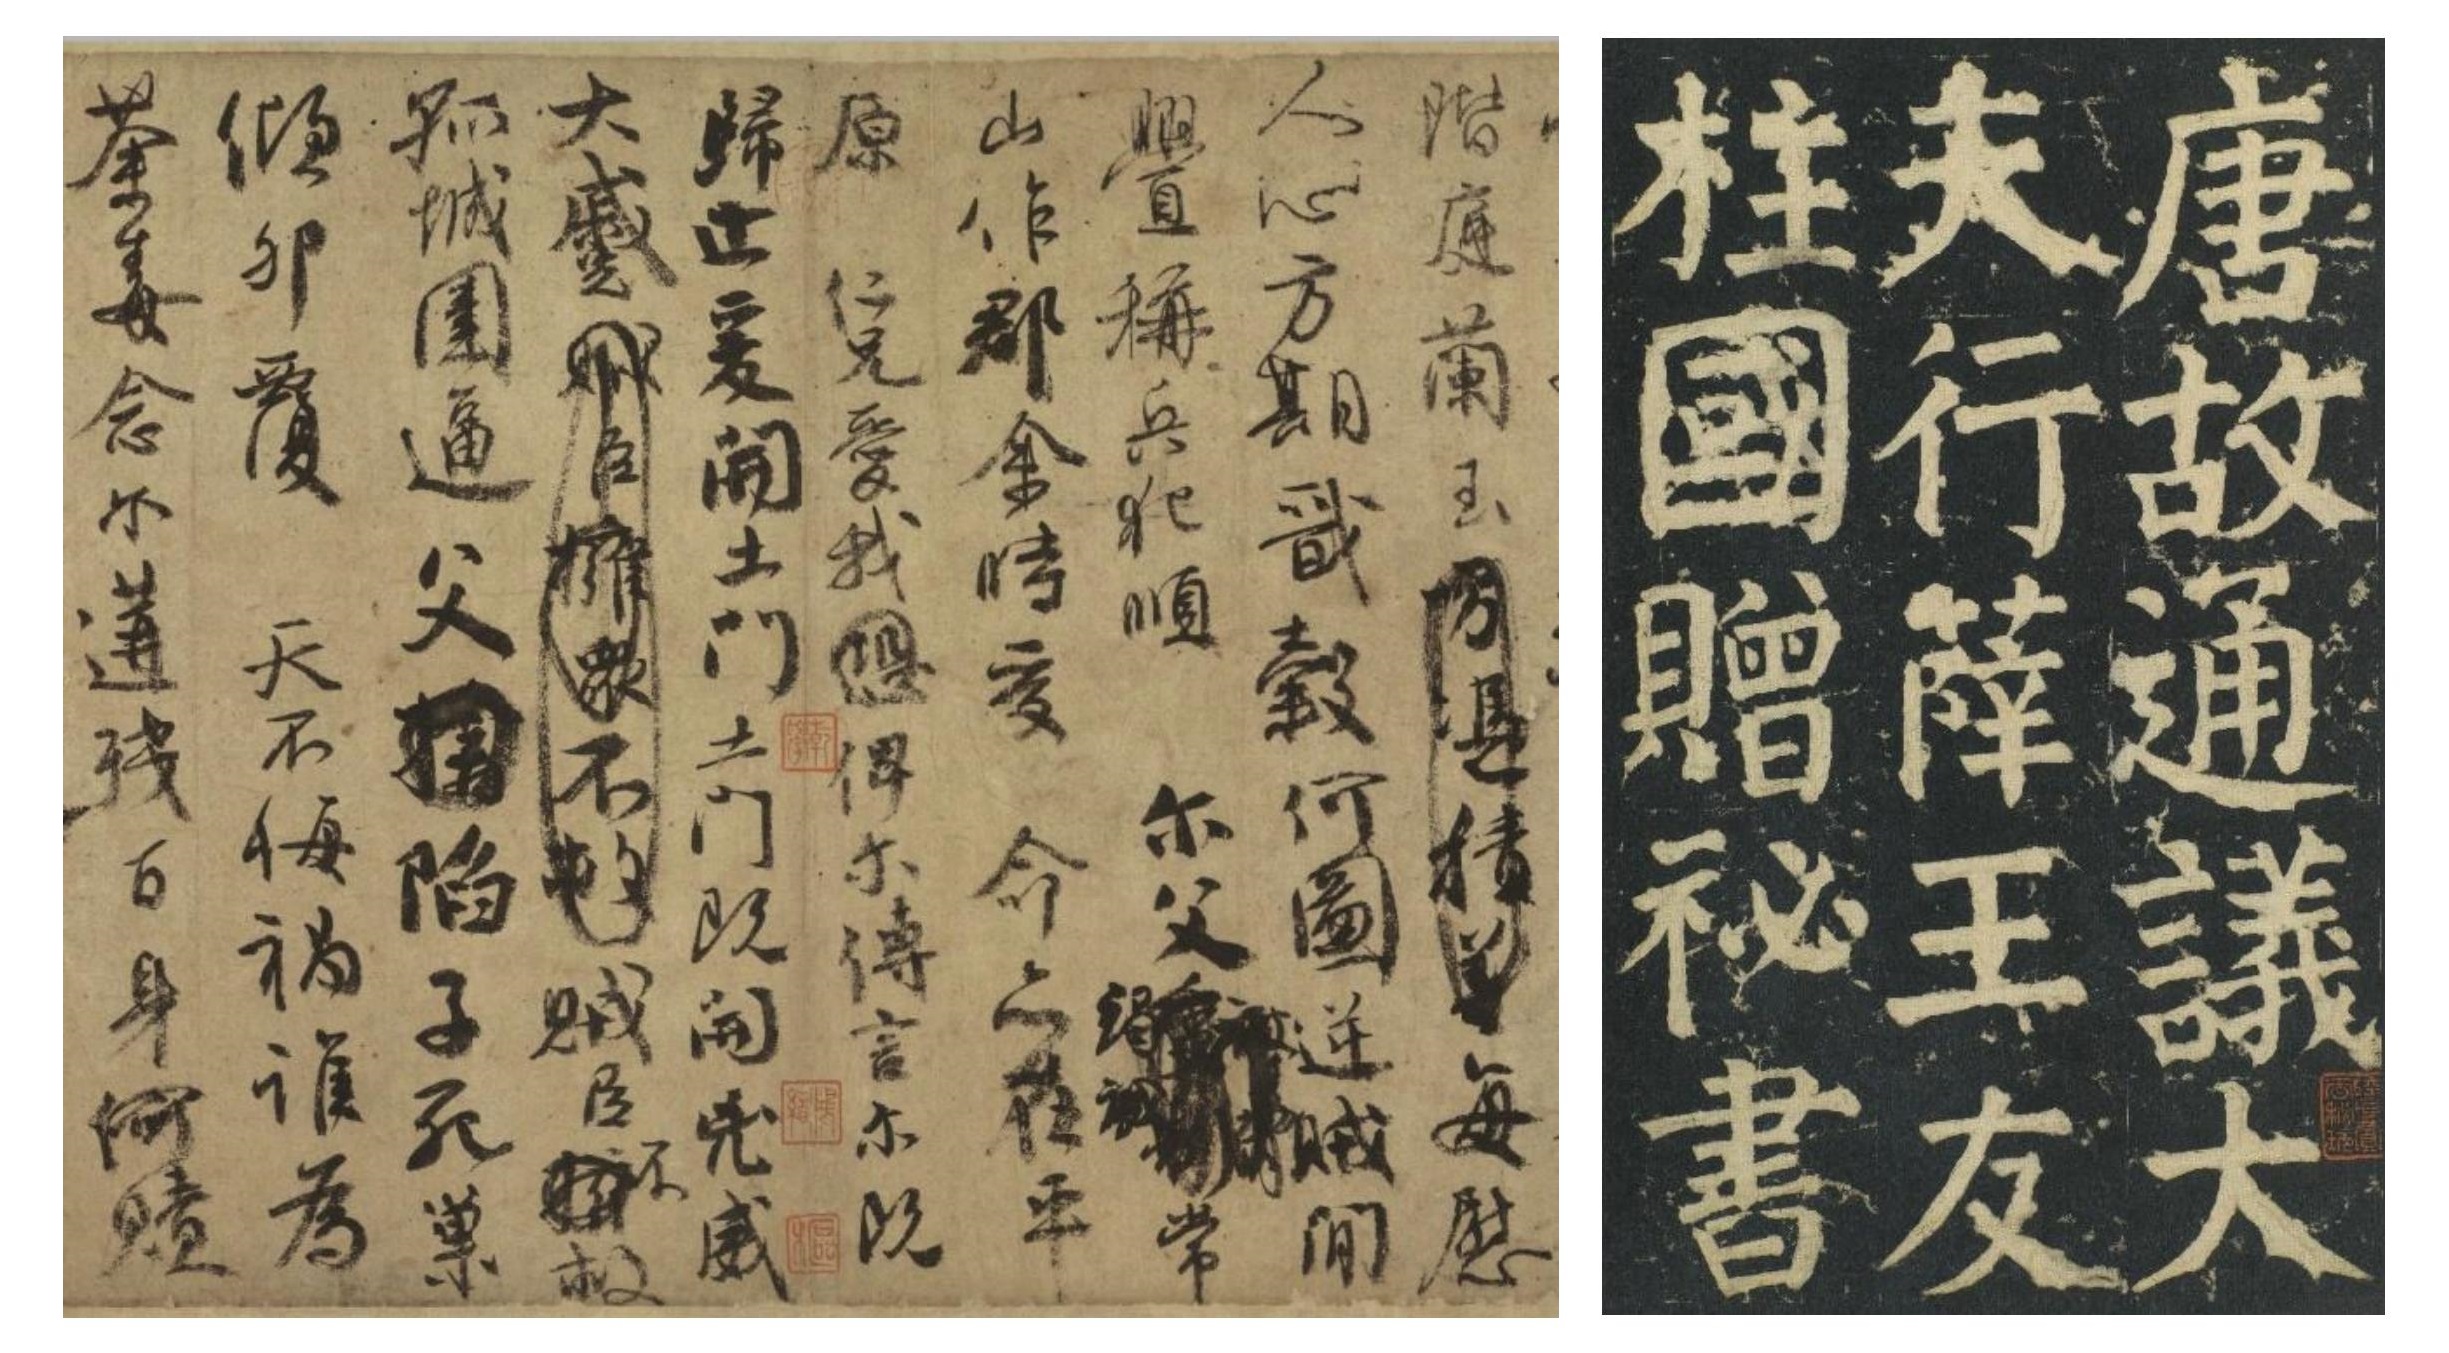 階庭蘭玉方憑積善每慰
人心方期戩穀何圖逆賊閒
釁稱兵犯順 尔父常
山作郡余時受 命亦在平
原 仁兄愛我恐俾尔傳言尔既
歸止爰開土門土門既開兇威
大蹙賊臣擁眾不救賊臣不救
孤城圍逼父陷子死巢
傾卵覆 天不悔禍誰為
荼毒念尔遘殘百身何贖
唐故通議大
夫行薛王友
柱國贈祕書